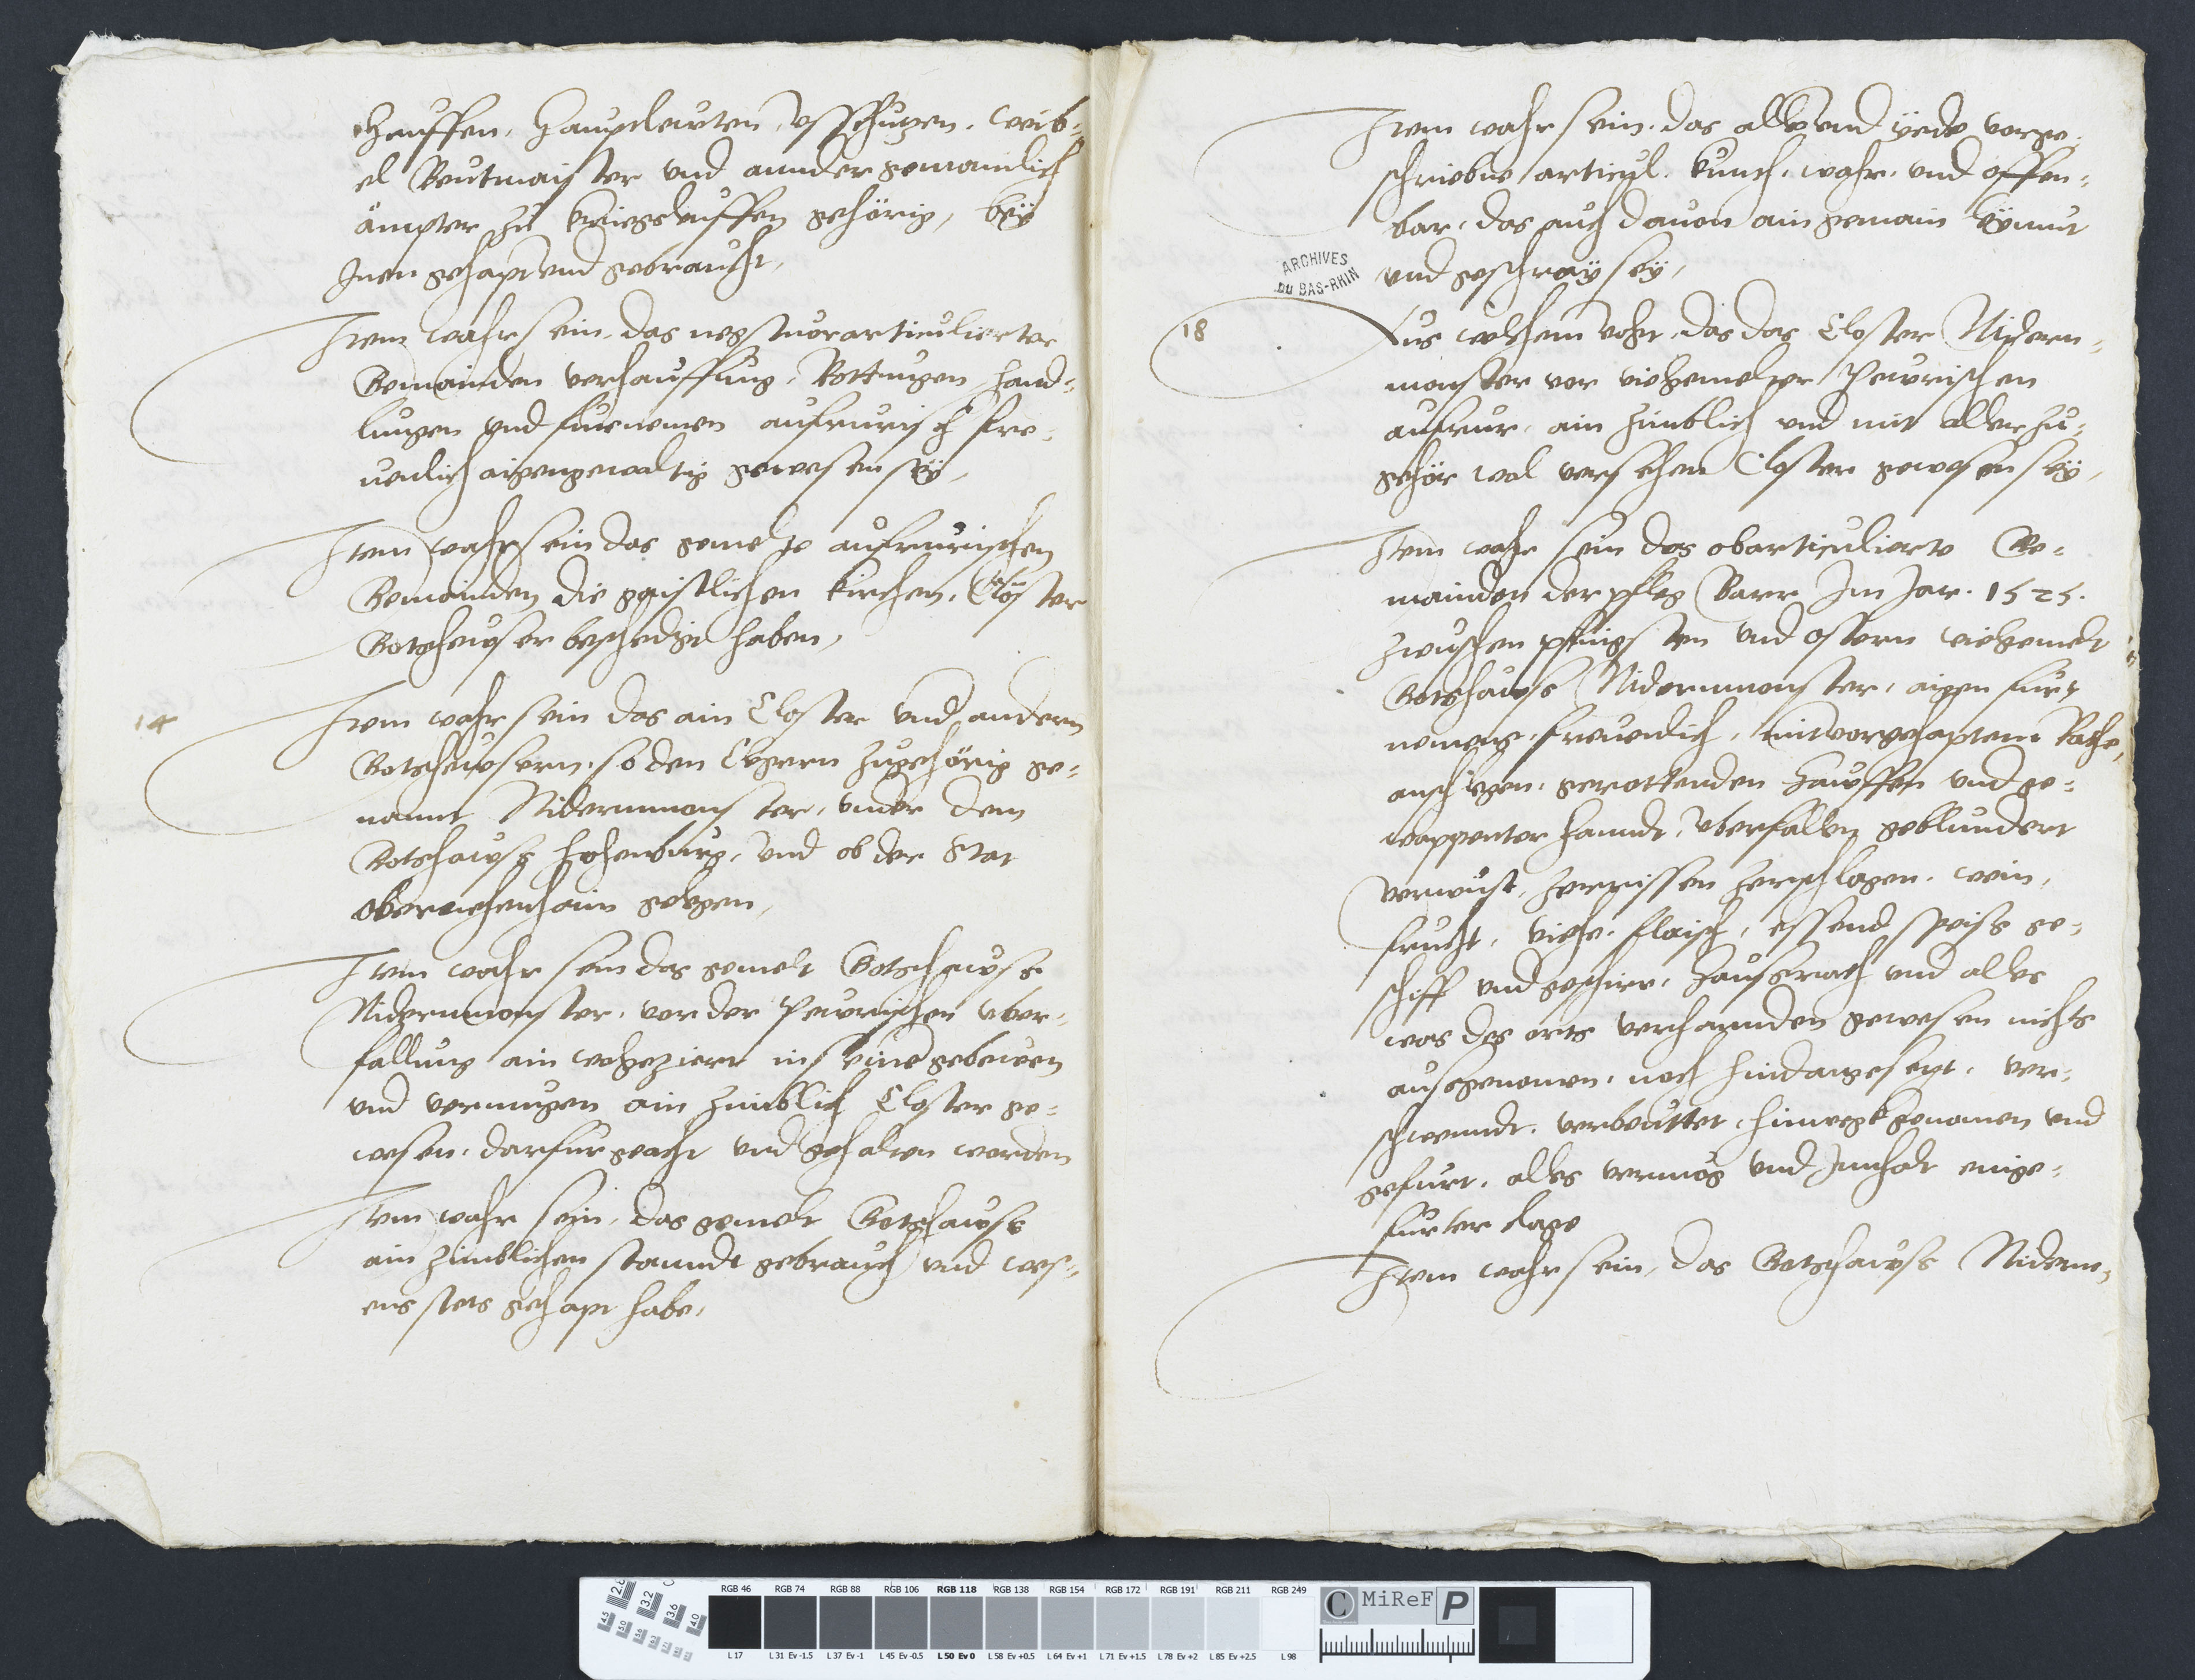 Heuffen, Hauptleuten, Usschutzen, weib¬
el Beutmaister und annder gemainlich
ämpter zu kriegsleuffen gehörig, beÿ
Inen gehapt und gebraucht,
Item wahr sein, das negstuorarticulierter
Gemainden verhauffung, Rottungen, hand¬
lungen und furnemen aufrurisch fre¬
uenlich aigengewaltig gewesen seÿ,
Item wahr sein das gemelte aufrurischen
Gemainden die gaistlichen kirchen, Clöster
Gotzheuser beschedigt haben,
14
Item wahr sein das ain Closter und andern
Gotzheusern, so den Clegern zugehörig ge¬
nannt Nidernmonster, under dem
Gotzhauss Hohenburg, und ob der Stat
Oberneehenhaim gelegen,
Item wahr sein das gemelt Gotzhauss
Nidernmonster, vor der Peurischen uber¬
fallung ain wolgeziert in seine gebeuen
und vermugen ain zimblich Closter ge¬
wesen, darfur geacht und gehalten worden
Item wahr sein, das gemelt Gotzhauss
ain zimblichen stanndt gebrauch und wes¬
ens stets gehapt habe,
Item wahr sein, das alle und yede vorge¬
schriebne articul, kunth, wahr, und offen¬
bar, das auch dauon ain gemain Lÿmut
und geschraÿ seÿ,
ARCHIVES
DU BAS-RHIN
18
Aus welchem volgt, das das Closter Nidern¬
monster vor vielgemelter Peurischen
aufrur, ain zimblich und mit aller zu¬
gehör wol versehen Closter gewesen seÿ,
Item wahr sein das obarticulierte Ge¬
mainden der pfleg Barr Im Jar. 1525.
zwuschen pfingsten und Ostern vielgemelt
Gotzhauss Nidernmonster, aigen fur¬
nemens, freuenlich, mit vorgehaptem Rathe,
anschlegen, gerottenden Hauffen und ge¬
wappenter hanndt, uberfallen geblundert
verwust, zerrissen zerschlagen, wein,
frucht, viehe, flaisch, essend speiss ge¬
schiff und geschirr, Haussrath und alles
was des orts verhannden gewesen nichts
aussgenomen, noch hindangesetzt, ver¬
schwenndt, verbeuttet, hinwegkgenomen und
gefurt, alles vermog und Innhalt einge¬
furter clage
Item wahr sein, das Gotzhauss Nidern¬
RGB 46 RGB 74 RGB 88 RGB 106 RGB 118 RGB 138 RGB 154 RGB 172 RGB 191 RGB 211 RGB 249
C MiReF P
L 17 L 31 Ev -1.5 L 37 Ev -1 L 45 Ev -0.5 L 50 Ev 0 L 58 Ev +0.5 L 64 Ev +1 L 71 Ev +1.5 L 78 Ev +2 L 85 Ev +2.5 L 98